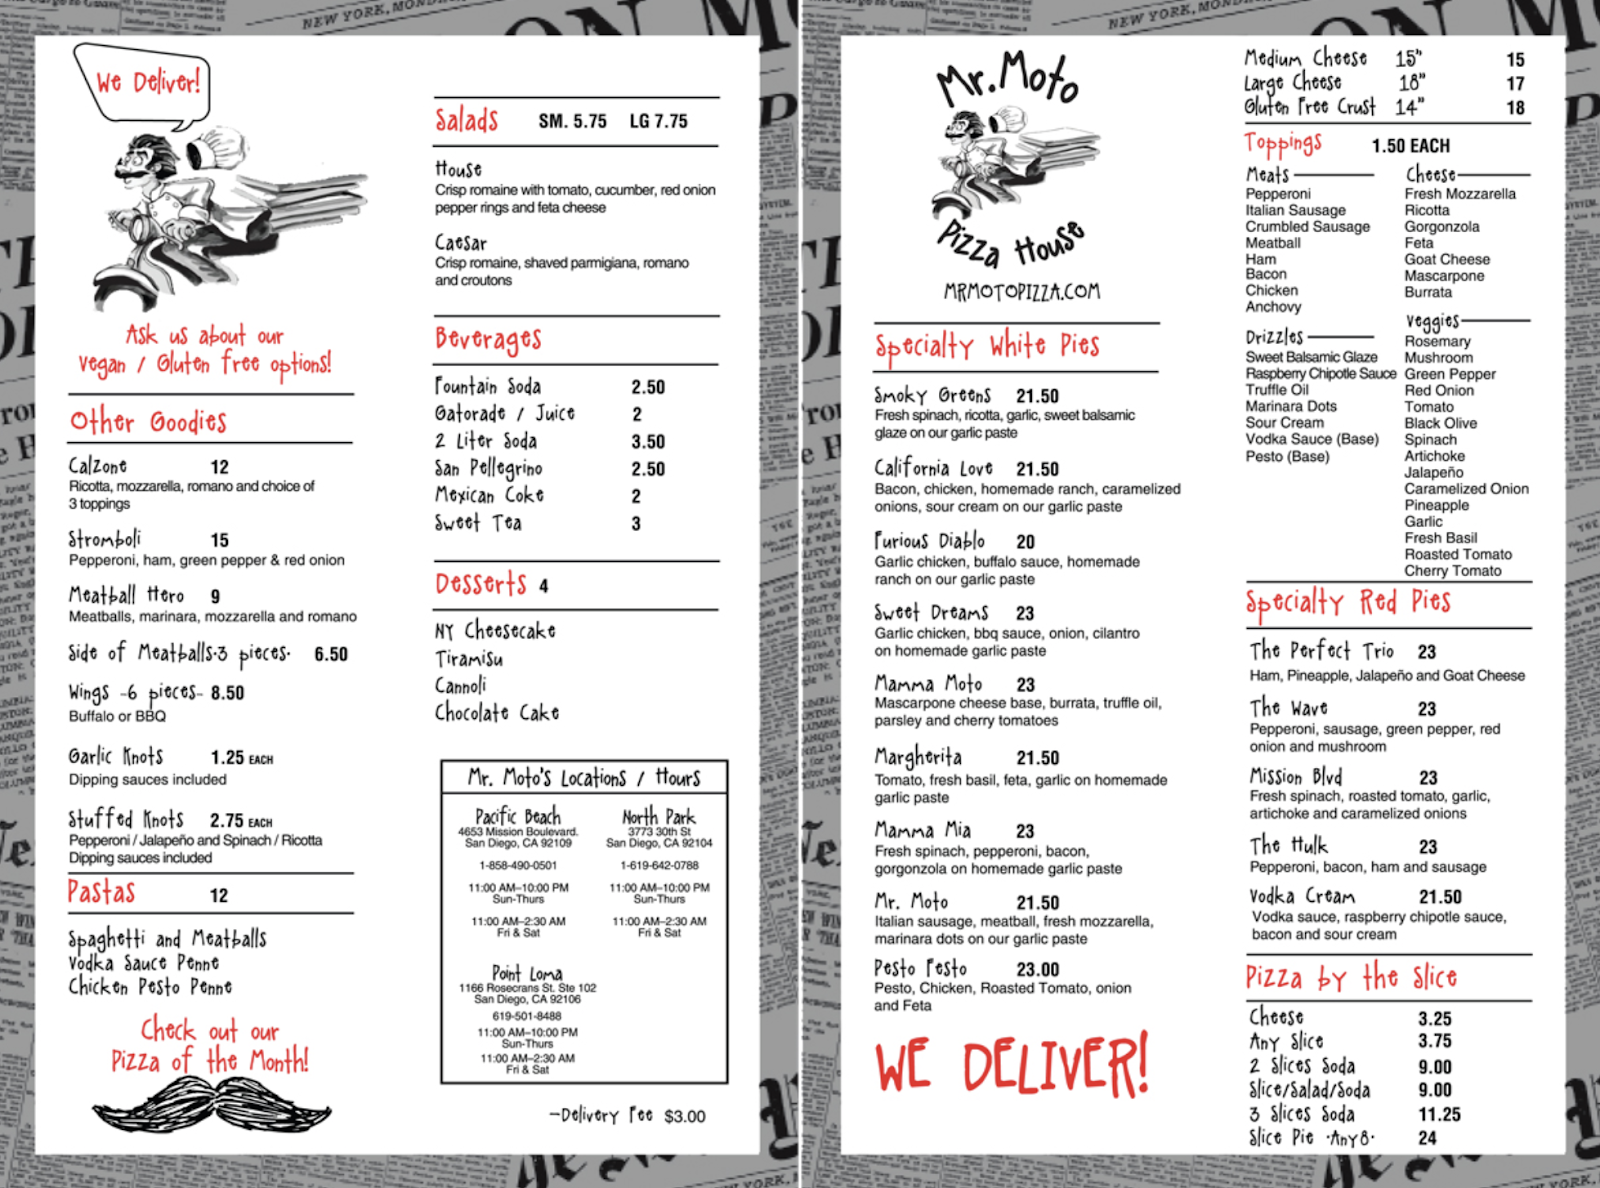 We Deliver!
Ask us about our
Vegan / Gluten free options!
Other Goodies
Calzone 12
Ricotta, mozzarella, romano and choice of
3 toppings
Stromboli 15
Pepperoni, ham, green pepper & red onion
Meatball Hero 9
Meatballs, marinara, mozzarella and romano
Side of Meatballs·3 pieces· 6.50
Wings -6 pieces- 8.50
Buffalo or BBQ
Garlic Knots 1.25 EACH
Dipping sauces included
Stuffed Knots 2.75 EACH
Pepperoni / Jalapeño and Spinach / Ricotta
Dipping sauces included
Pastas 12
Spaghetti and Meatballs
Vodka Sauce Penne
Chicken Pesto Penne
Check out our
Pizza of the Month!
Salads SM. 5.75 LG 7.75
House
Crisp romaine with tomato, cucumber, red onion
pepper rings and feta cheese
Caesar
Crisp romaine, shaved parmigiana, romano
and croutons
Beverages
Fountain Soda 2.50
Gatorade / Juice 2
2 Liter Soda 3.50
San Pellegrino 2.50
Mexican Coke 2
Sweet Tea 3
Desserts 4
NY Cheesecake
Tiramisu
Cannoli
Chocolate Cake
Mr. Moto's Locations / Hours
Pacific Beach
4653 Mission Boulevard.
San Diego, CA 92109
1-858-490-0501
11:00 AM–10:00 PM
Sun-Thurs
11:00 AM–2:30 AM
Fri & Sat
North Park
3773 30th St
San Diego, CA 92104
1-619-642-0788
11:00 AM–10:00 PM
Sun-Thurs
11:00 AM–2:30 AM
Fri & Sat
Point Loma
1166 Rosecrans St. Ste 102
San Diego, CA 92106
619-501-8488
11:00 AM–10:00 PM
Sun-Thurs
11:00 AM–2:30 AM
Fri & Sat
-Delivery Fee $3.00
Mr. Moto
Pizza House
MRMOTOPIZZA.COM
Specialty White Pies
Smoky Greens 21.50
Fresh spinach, ricotta, garlic, sweet balsamic
glaze on our garlic paste
California Love 21.50
Bacon, chicken, homemade ranch, caramelized
onions, sour cream on our garlic paste
Furious Diablo 20
Garlic chicken, buffalo sauce, homemade
ranch on our garlic paste
Sweet Dreams 23
Garlic chicken, bbq sauce, onion, cilantro
on homemade garlic paste
Mamma Moto 23
Mascarpone cheese base, burrata, truffle oil,
parsley and cherry tomatoes
Margherita 21.50
Tomato, fresh basil, feta, garlic on homemade
garlic paste
Mamma Mia 23
Fresh spinach, pepperoni, bacon,
gorgonzola on homemade garlic paste
Mr. Moto 21.50
Italian sausage, meatball, fresh mozzarella,
marinara dots on our garlic paste
Pesto Festo 23.00
Pesto, Chicken, Roasted Tomato, onion
and Feta
WE DELIVER!
Medium Cheese 15" 15
Large Cheese 18" 17
Gluten Free Crust 14" 18
Toppings 1.50 EACH
Meats
Pepperoni
Italian Sausage
Crumbled Sausage
Meatball
Ham
Bacon
Chicken
Anchovy
Drizzles
Sweet Balsamic Glaze
Raspberry Chipotle Sauce
Truffle Oil
Marinara Dots
Sour Cream
Vodka Sauce (Base)
Pesto (Base)
Cheese
Fresh Mozzarella
Ricotta
Gorgonzola
Feta
Goat Cheese
Mascarpone
Burrata
Veggies
Rosemary
Mushroom
Green Pepper
Red Onion
Tomato
Black Olive
Spinach
Artichoke
Jalapeño
Caramelized Onion
Pineapple
Garlic
Fresh Basil
Roasted Tomato
Cherry Tomato
Specialty Red Pies
The Perfect Trio 23
Ham, Pineapple, Jalapeño and Goat Cheese
The Wave 23
Pepperoni, sausage, green pepper, red
onion and mushroom
Mission Blvd 23
Fresh spinach, roasted tomato, garlic,
artichoke and caramelized onions
The Hulk 23
Pepperoni, bacon, ham and sausage
Vodka Cream 21.50
Vodka sauce, raspberry chipotle sauce,
bacon and sour cream
Pizza by the Slice
Cheese 3.25
Any Slice 3.75
2 Slices Soda 9.00
Slice/Salad/Soda 9.00
3 Slices Soda 11.25
Slice Pie ·Any8· 24